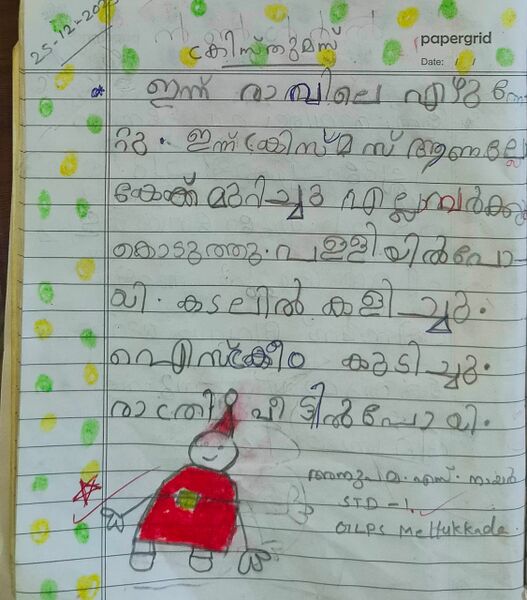 25-12-202
papergrid
ക്രിസ്തുമസ്
Date: / /
ഇന്ന് രാവിലെ എഴുന്നേ
റ്റു. ഇന്ന് ക്രിസ്മസ് ആണല്ലോ
കേക്ക് മുറിച്ചു എല്ലാവർക്കും
കൊടുത്തു. പള്ളിയിൽ പോ
യി. കടലിൽ കളിച്ചു.
ഐസ്ക്രീം കുടിച്ചു.
രാത്രി വീട്ടിൽ പോയി.
എസ്. നായർ
STD - 1
GLPS Mettukkada